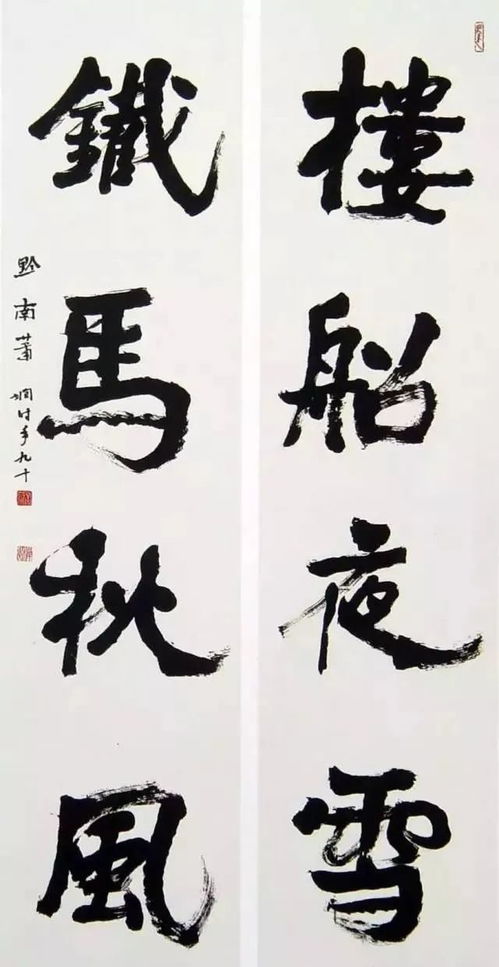 樓船夜雪
鐵馬秋風
黔南蕭娴时年九十